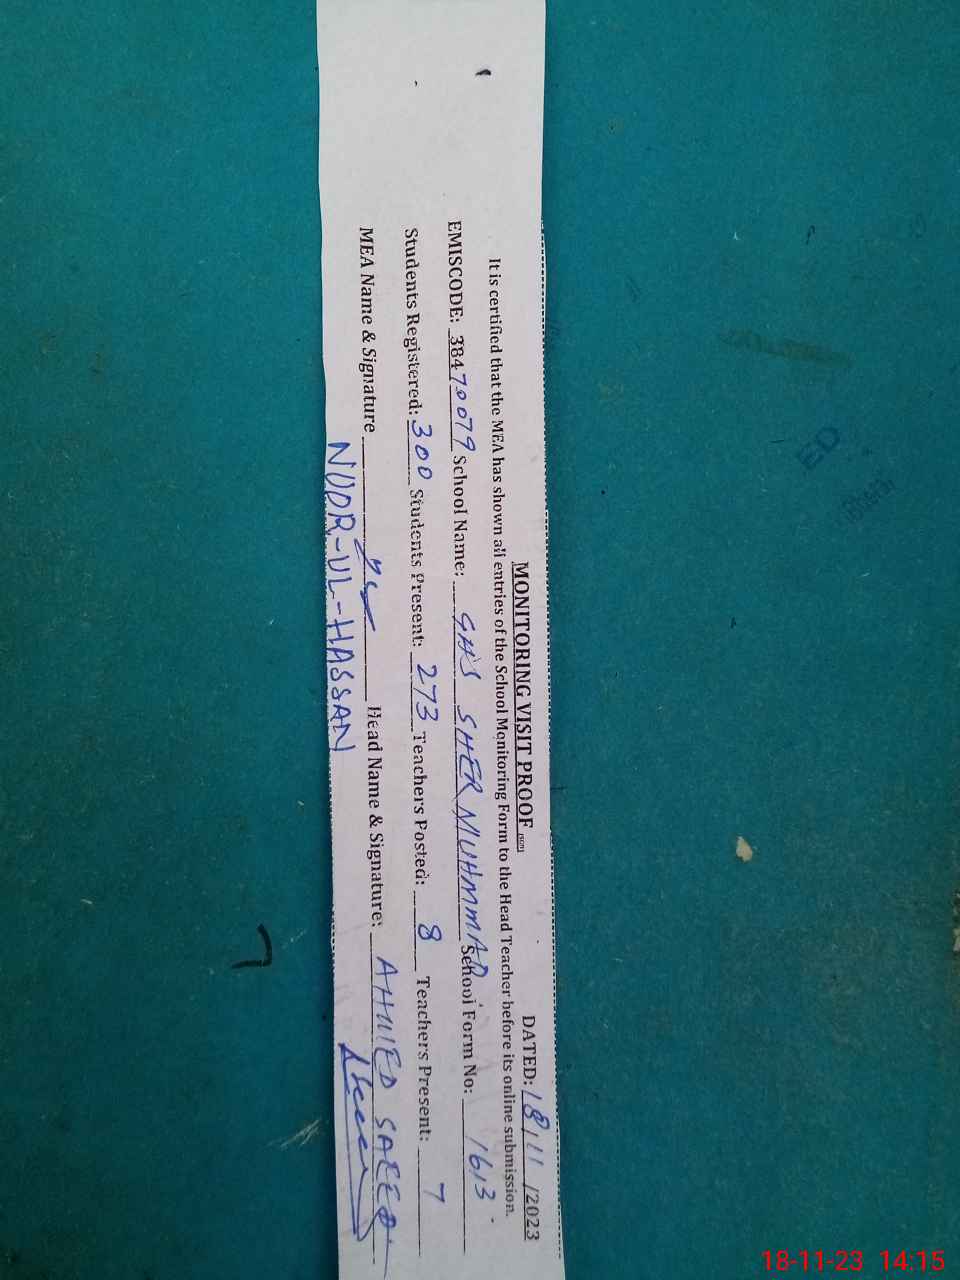 MONITORING VISIT PROOF
DATED: 18/11/2023
It is certified that the MEA has shown all entries of the School Monitoring Form to the Head Teacher before its online submission.
EMISCODE: 38470079 School Name: GHS SHER MUHMMAD School Form No: 1613
Students Registered: 300 Students Present: 273 Teachers Posted: 8 Teachers Present: 7
MEA Name & Signature Head Name & Signature: AHMED SAEED
NOOR-UL-HASSAN
ED
18-11-23 14:15